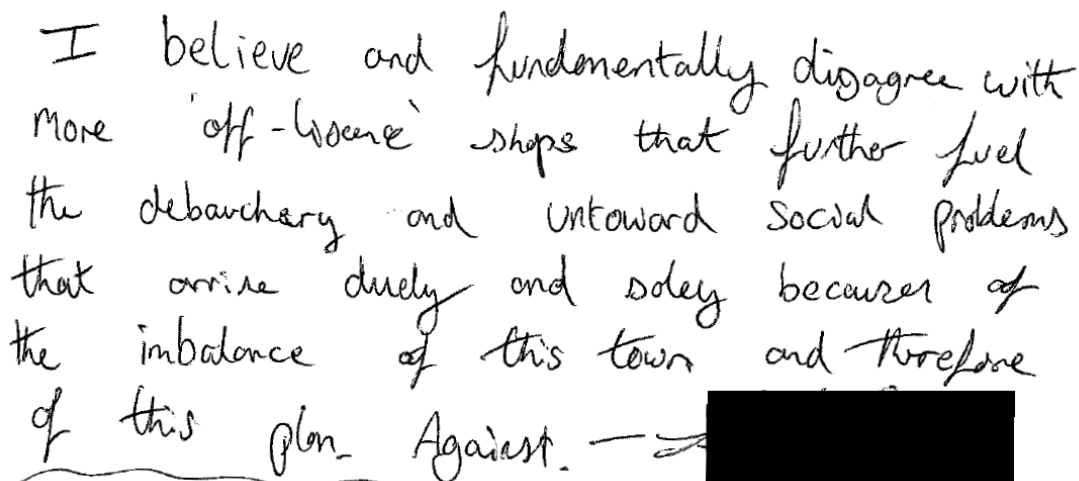 I believe and fundementally disagree with
more 'off-lisence' shops that further fuel
the debauchery and untoward social problems
that arrise duely and soley becauser of
the imbalance of this town and therefore
of this plan. Against. –